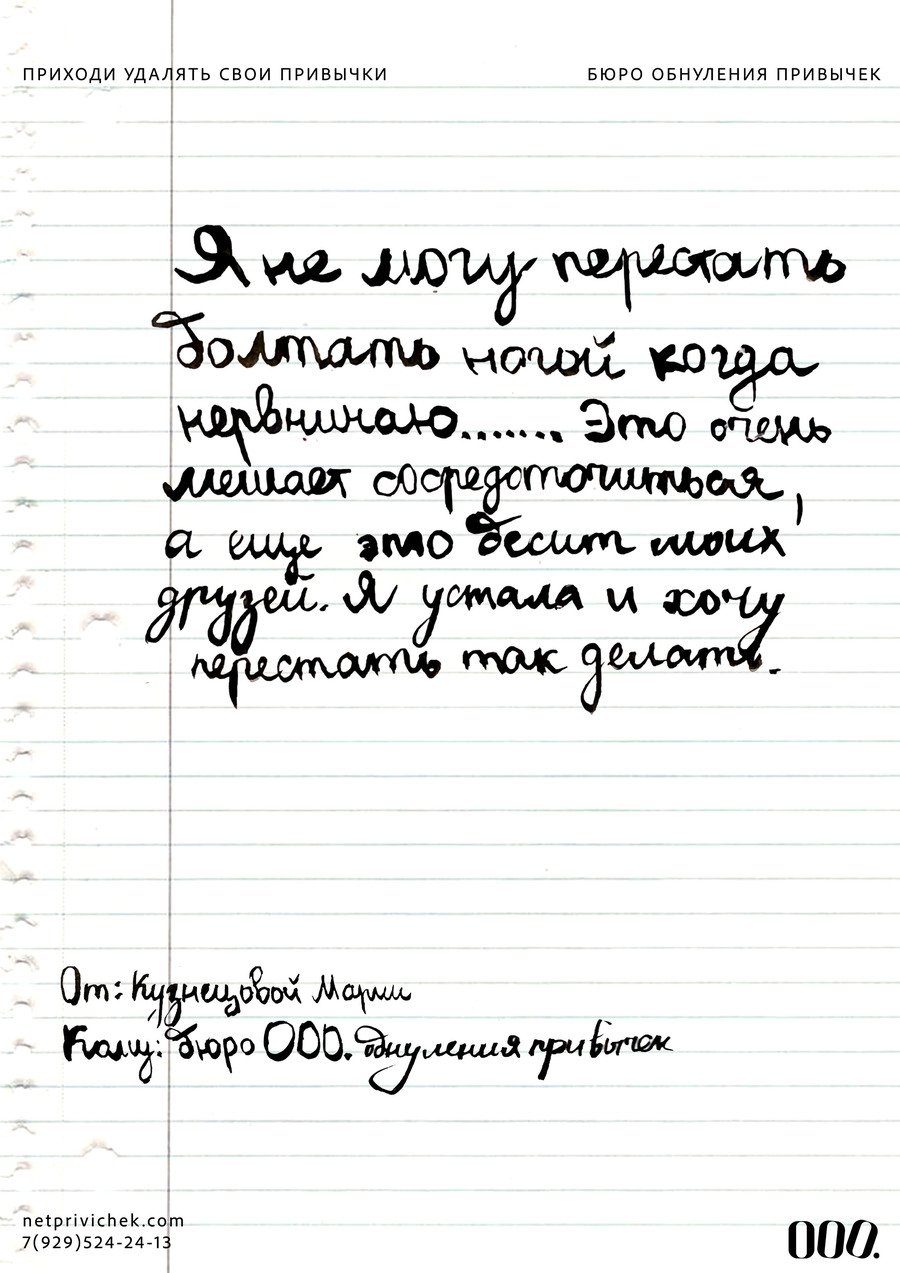 ПРИХОДИ УДАЛЯТЬ СВОИ ПРИВЫЧКИ
БЮРО ОБНУЛЕНИЯ ПРИВЫЧЕК
Я не могу перестать
болтать ногой когда
нервничаю....... Это очень
мешает сосредоточиться,
а еще это бесит моих
друзей. Я устала и хочу
перестать так делать.
От: Кузнецовой Марии
Кому: бюро 000. обнуления привычек
netprivichek.com
7(929)524-24-13
000.